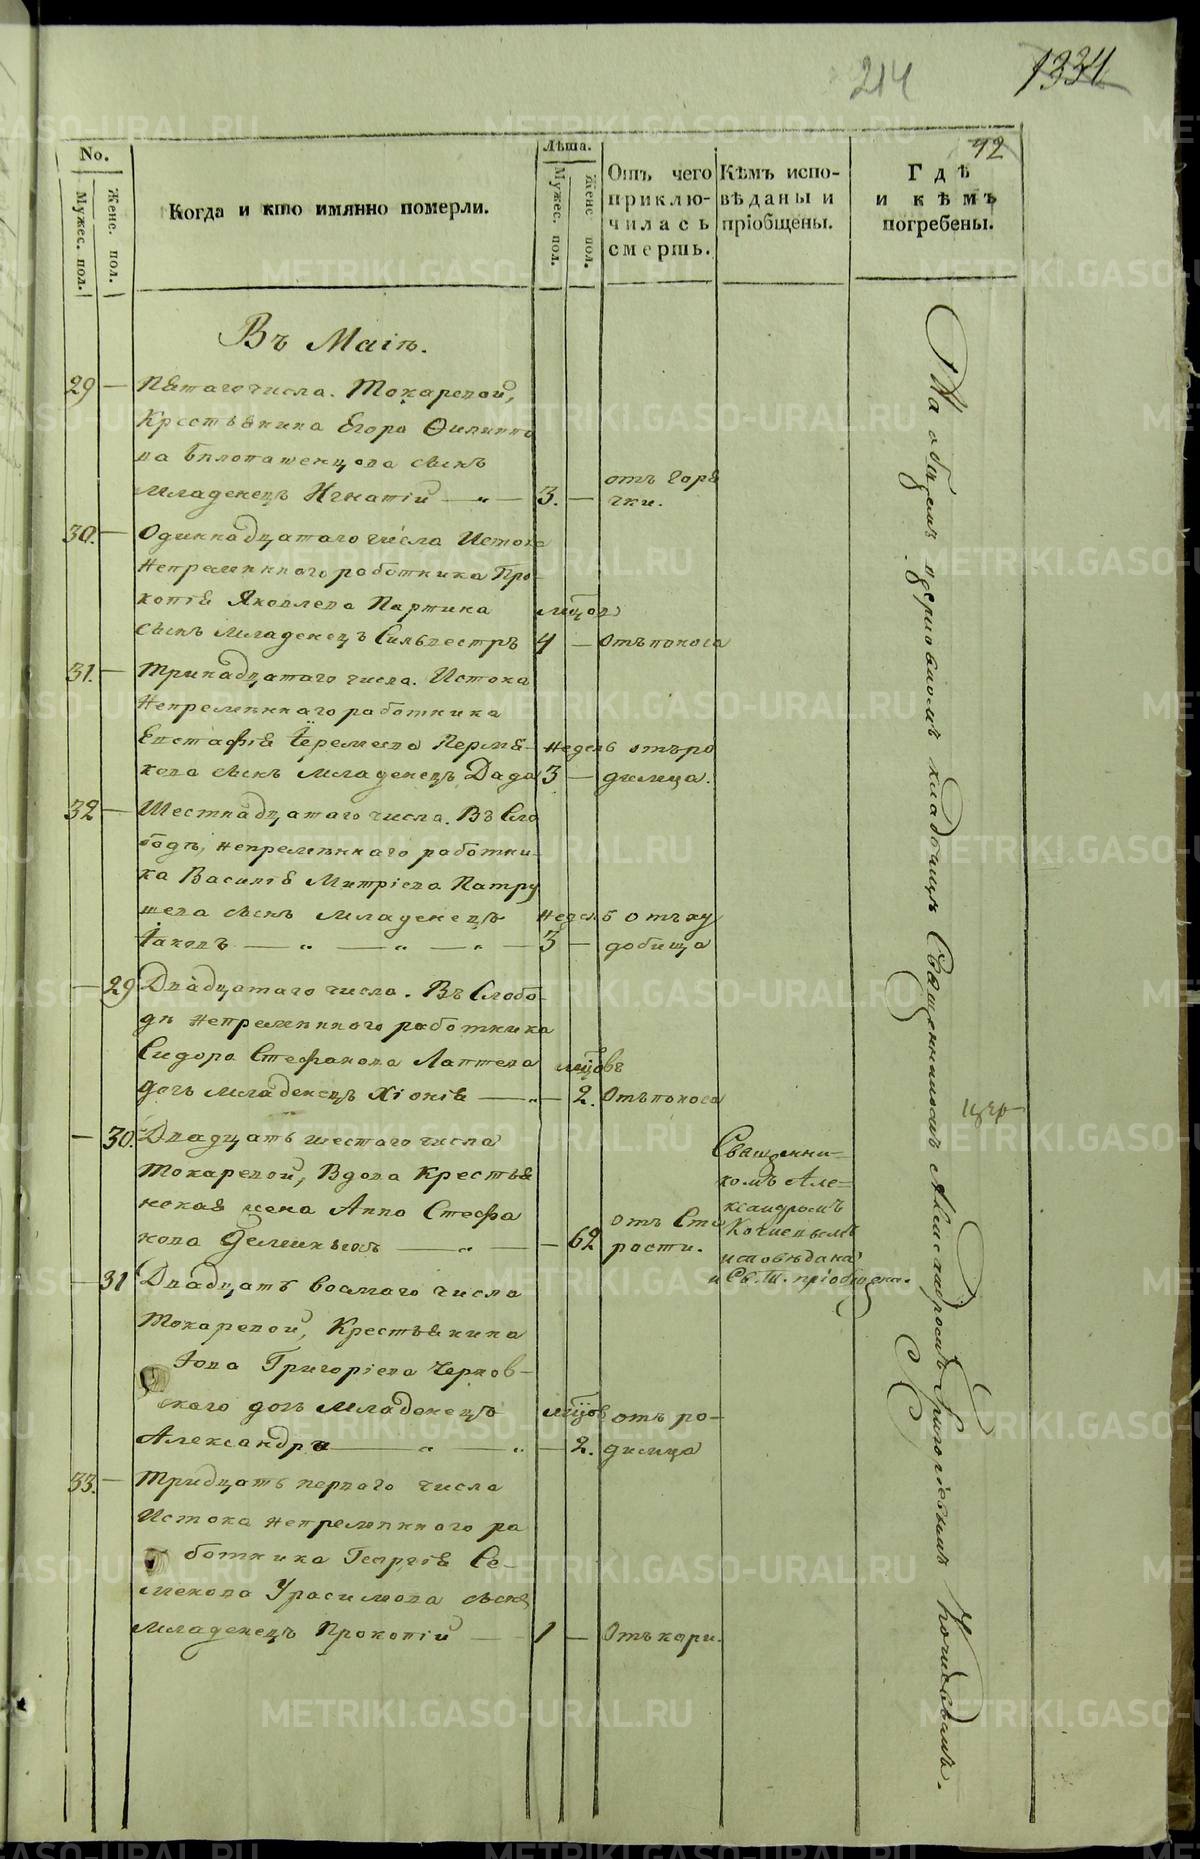 214
1334
42
No.
Мужес. пол.
Женс. пол.
Когда и кто имянно померли.
Лѣта.
Мужес. пол.
Женс. пол.
Отъ чего
приклю-
чилась
смерть.
Кѣмъ испо-
вѣданы и
прiобщены.
Гдѣ
и кѣмъ
погребены.
Въ Маіѣ.
29 — Пятаго числа. Токаревой,
Крестьянина Егора Филиппо
ва Бѣлопашенцова сынъ
младенецъ Игнатій — „ — 3. —
отъ горя
чки.
30. — Одиннадцатаго числа Истока
Непремѣннаго работника Про-
копія Яковлева Партина
сынъ младенецъ Сильвестръ
мцов
4 — Отъ поноса
31. — Тринадцатаго числа. Истока
Непремѣннаго работника
Евстафія Іеремеева Пермя-
кова сынъ младенецъ Дада
недель
3 —
отъ ро
димца.
32 — Шестнадцатаго числа. Въ Сло
бодѣ, непремѣннаго работни-
ка Василія Митріева Патру
шева сынъ младенецъ
Іаковъ — „ — „ — „ —
недель
3 —
отъ ху
добища
— 29 Двадцатаго числа. Въ Слобо-
дѣ непремѣннаго работника
Сидора Стефанова Лаптева
дочь младенецъ Хіонія — „
мцовъ
— 2. Отъ поноса
— 30. Двадцать шестаго числа
Токаревой, Вдова Крестья
нская жена Анна Стефа
нова — „ — — 62
отъ Ста
рости.
Священни-
комъ Але-
ксандромъ
Кочневымъ
исповѣдана
и Св. Т. пріобщена.
— 31 Двадцать восмаго числа
Токаревой, Крестьянина
Іова Григоріева Чернов-
скаго дочь младенецъ
Александра — „ — „
мцов
— 2.
отъ ро-
димца
33. — Тридцать перваго числа
Истока непремѣннаго ра
ботника Георгія Се-
менова Урасимова сынъ
Младенецъ Прокопій — 1 — Отъ кори.
На общемъ приходскомъ кладбищѣ Священникомъ Александромъ Григорьевымъ Кочневымъ.
METRIKI.GASO-URAL.RU